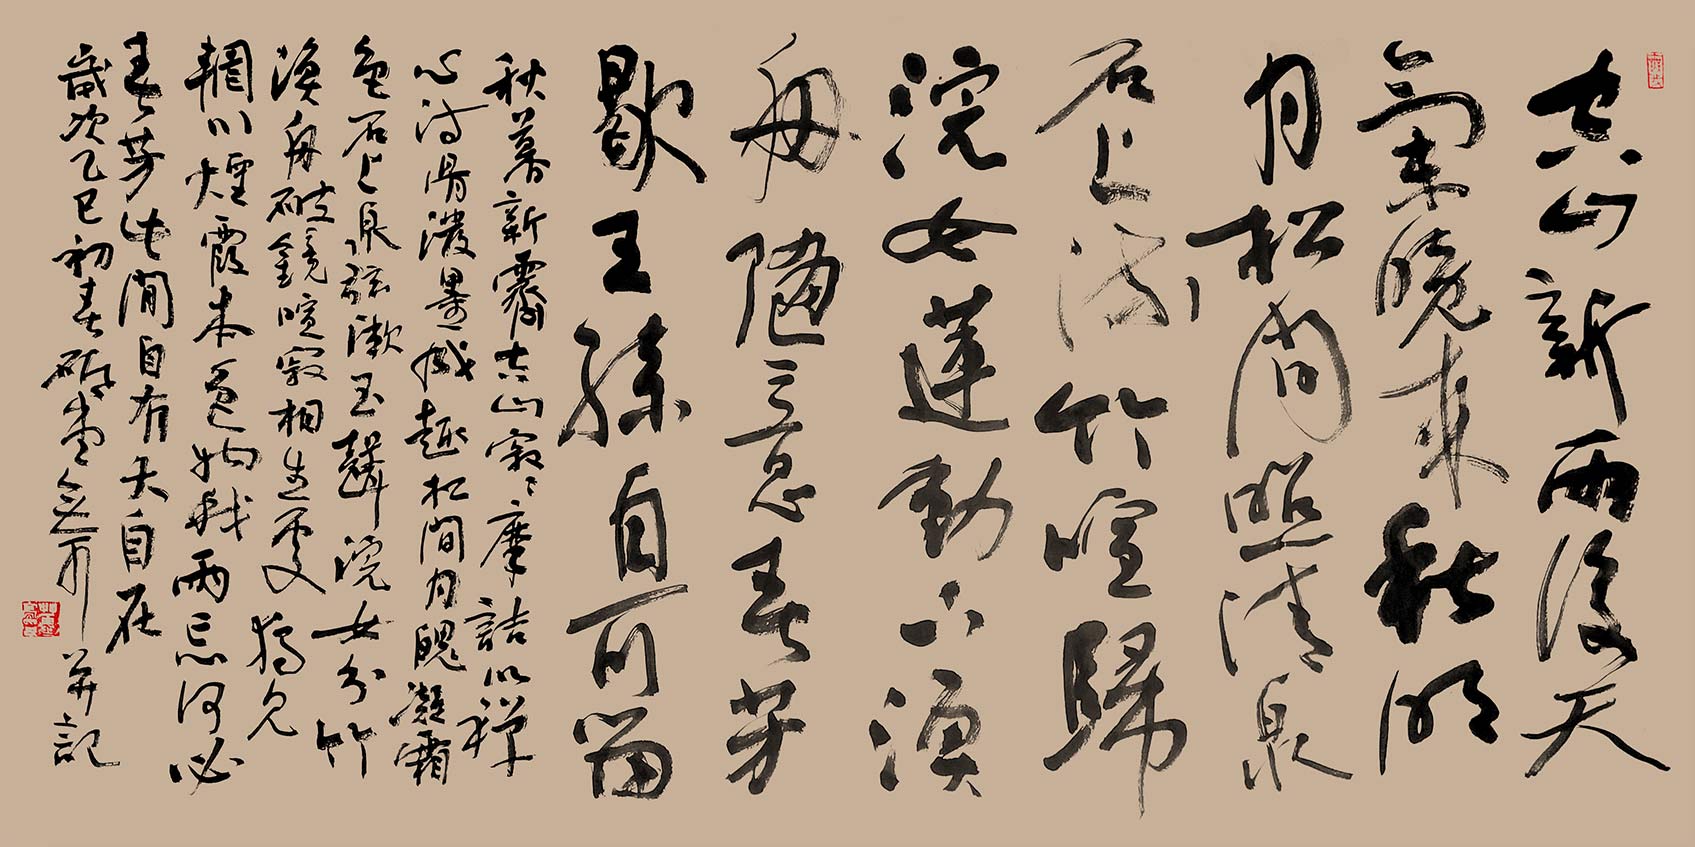 空山新雨後天
氣晚來秋明
月松間照清泉
石上流竹喧歸
浣女蓮動下漁
舟隨意春芳
歇王孫自可留
秋暮新霽空山寂々摩詰以禪
心詩骨潑墨成趣松間月魄凝霜
色石上泉弦漱玉聲浣女分竹
漁舟破鏡喧寂相生處猶見
輞川煙霞本色物我兩忘何必
春芳此間自有大自在
歲次乙巳初春堂并記